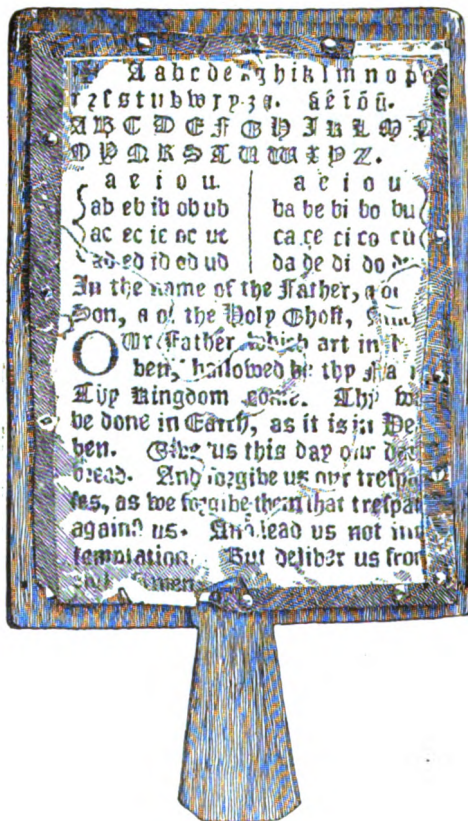 A a b c d e g h i k l m n o p
r ꝛ ſ s t u b w x y z a. a e i o u.
A B C D E F G H I K L M
O P Q R S T U W X Y Z.
a e i o u a e i o u
ab eb ib ob ub ba be bi bo bu
ac ec ic oc uc ca ce ci co cu
ad ed id od ud da de di do
In the name of the Father,
Son, & of the Holy Ghoſt,
OUr Father which art in
ven, hallowed be thy
Thy Kingdom come. Thy
be done in Earth, as it is in Hea
ven. Give us this day our
bread. And forgive us our treſpa
ſes, as we forgive them that treſpaſ
againſt us. And lead us not in
temptation. But deliver us from
Amen